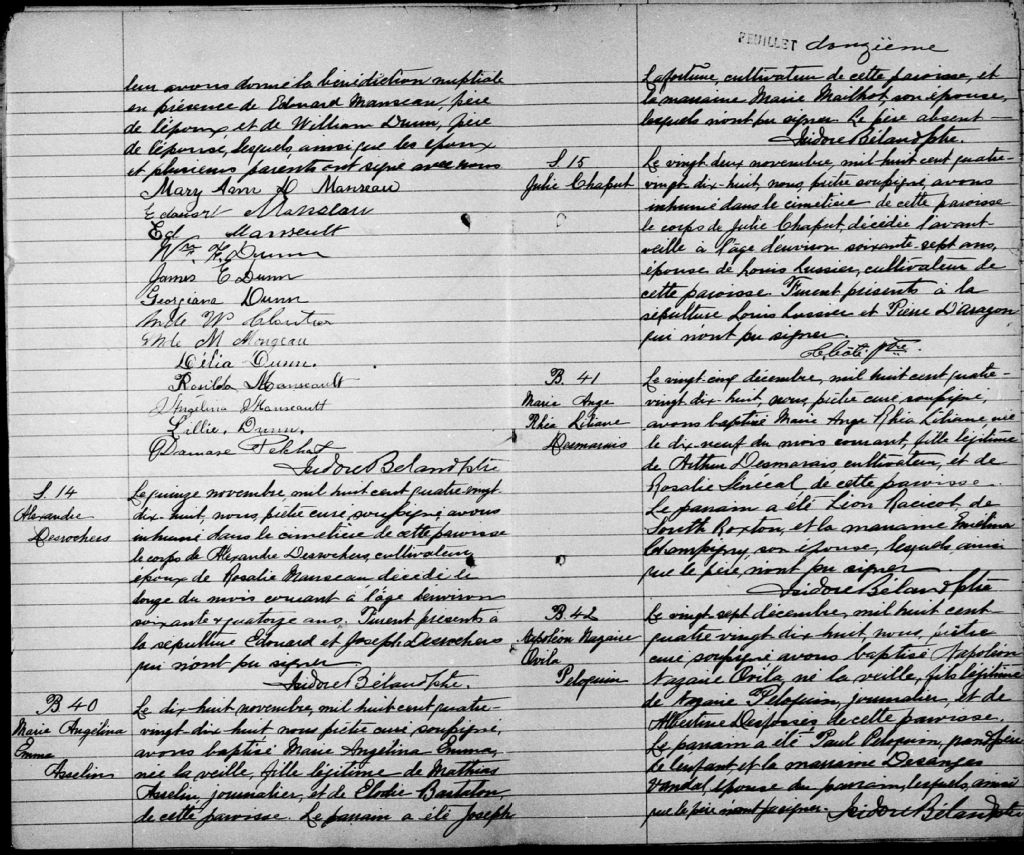 leur avons donné la bénédiction nuptiale
en présence de Edouard Manseau, père
de l'époux et de William Dunn, père
de l'épouse, lesquels ainsi que les époux
et plusieurs parents ont signé avec nous
Mary Ann D Manseau
Edouard Manseau
Ed Manseault
Wm. F. Dunn
James E Dunn
Georgiana Dunn
W Cloutier
M Mongeau
Délia Dunn.
Rosilda Manseault
Angelina Manseault
Lillie. Dunn.
Damase Pelcha
Isidore Béland ptre
S. 14
Alexandre
Desrochers
Le quinze novembre, mil huit cent quatre vingt
dix-huit, nous, prêtre curé, soussigné avons
inhumé dans le cimetière de cette paroisse
le corps de Alexandre Desrochers, cultivateur
époux de Rosalie Manseau décédé le
douze du mois courant à l'âge d'environ
soixante & quatorze ans. Furent présents à
la sépulture Edouard et Joseph Desrochers
qui n'ont pu signer
Isidore Béland ptre.
B 40
Marie Angélina
Emma
Asselin
Le dix huit novembre, mil huit cent quatre-
vingt-dix huit nous prêtre curé soussigné,
avons baptisé Marie Angelina Emma,
née la veille, fille légitime de Mathias
Asselin, journalier, et de Elodie
de cette paroisse. Le parrain a été Joseph
FEUILLET douzième
Lafortune, cultivateur de cette paroisse, et
la marraine Marie Mailhot, son épouse,
lesquels n'ont pu signer. Le père absent —
Isidore Béland ptre.
S. 15
Julie Chaput
Le vingt deux novembre, mil huit cent quatre-
vingt-dix-huit, nous prêtre soussigné, avons
inhumé dans le cimetière de cette paroisse
le corps de Julie Chaput, décédée l'avant
veille à l'âge d'environ soixante-sept ans,
épouse de Louis Lussier, cultivateur de
cette paroisse. Furent présents à la
sépulture Louis Lussier et Pierre D'aragon
qui n'ont pu signer.
Côté ptre
B. 41
Marie Ange
Rhéa Liliane
Desmarais
Le vingt cinq décembre, mil huit cent quatre-
vingt-dix-huit, nous, prêtre curé soussigné,
avons baptisé Marie Ange Rhéa Liliane, née
le dix-neuf du mois courant, fille légitime
de Arthur Desmarais, cultivateur, et de
Rosalie Sénécal de cette paroisse.
Le parrain a été Léon Racicot de
South Roxton, et la marraine Emélina
Champigny, son épouse, lesquels ainsi
que le père, n'ont pu signer
Isidore Béland ptre
B. 42
Napoléon Nazaire
Ovila
Peloquin
Le vingt-sept décembre, mil huit cent
quatre vingt-dix-huit, nous, prêtre
curé soussigné avons baptisé Napoléon
Nazaire Ovila, né la veille, fils légitime
de Nazaire Péloquin, journalier, et de
Albertine Desfossés de cette paroisse.
Le parrain a été Paul Peloquin, grand père
de l'enfant et la marraine Desanges
Vandal, épouse du parrain, lesquels, ainsi
que le père n'ont pu signer. Isidore Béland ptre